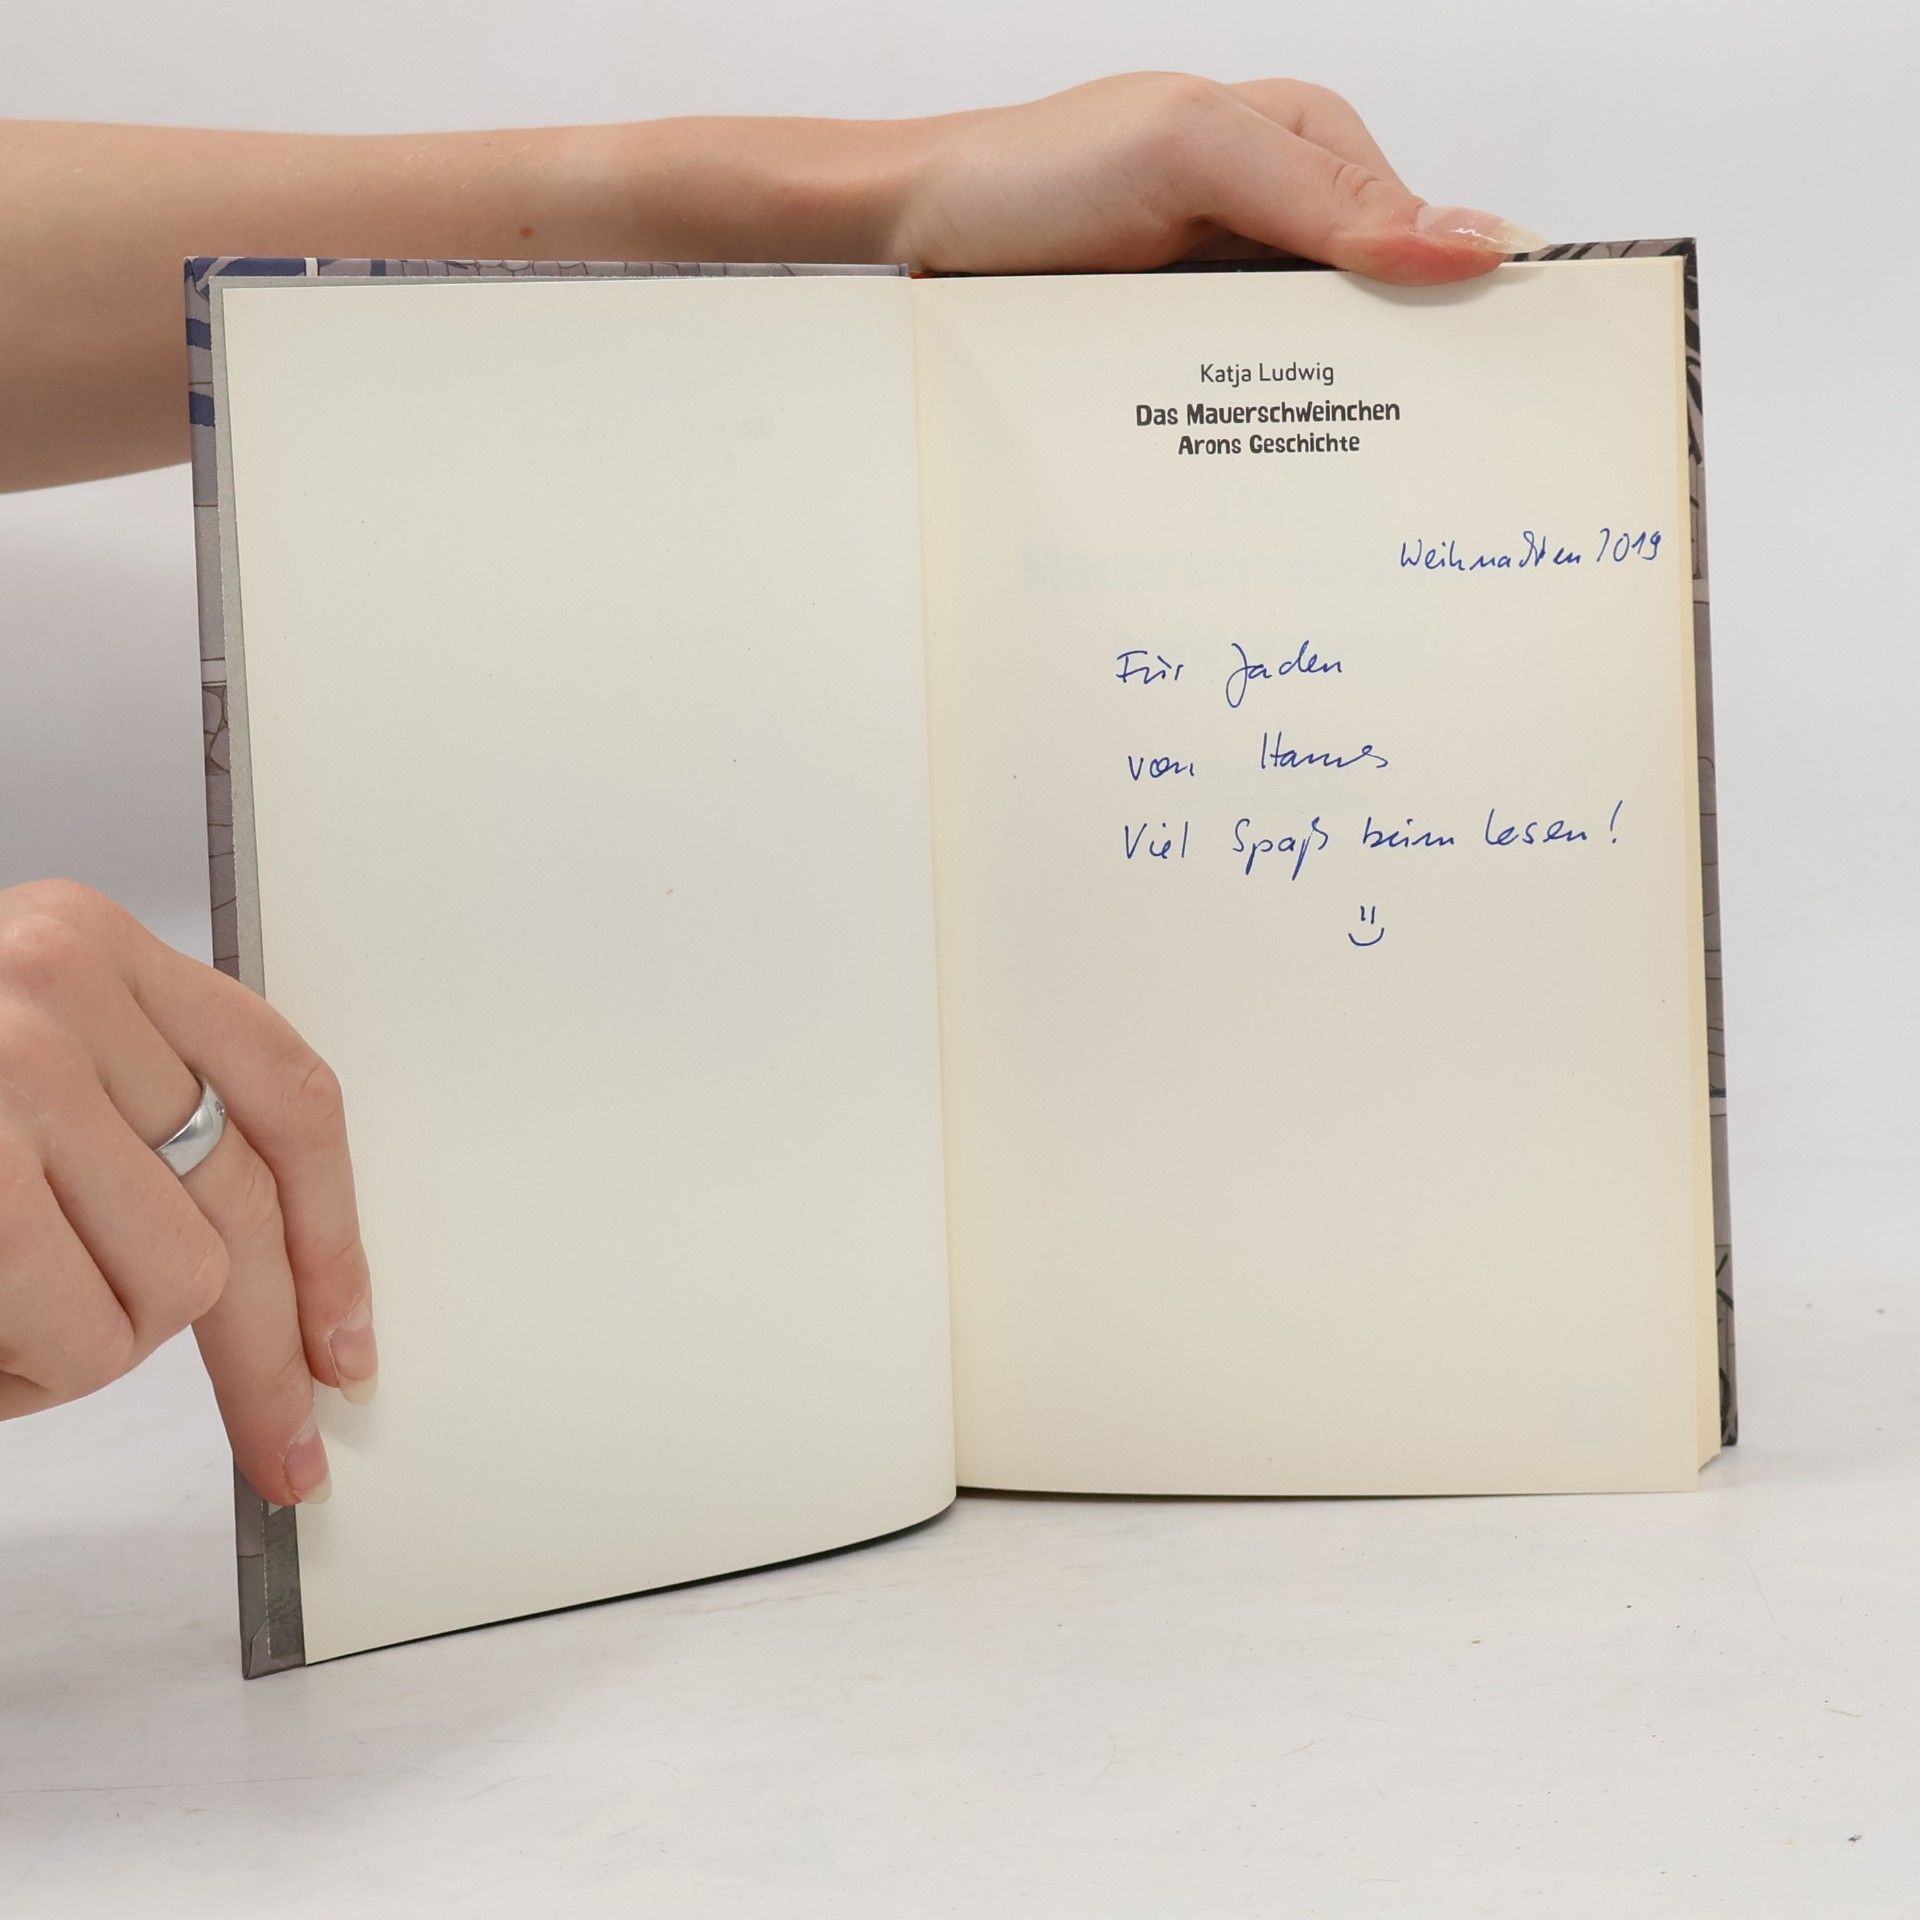 Katja Ludwig
Das Mauerschweinchen
Arons Geschichte
Weihnachten 2019
Für Jaden
von Hannes
Viel Spaß beim Lesen!